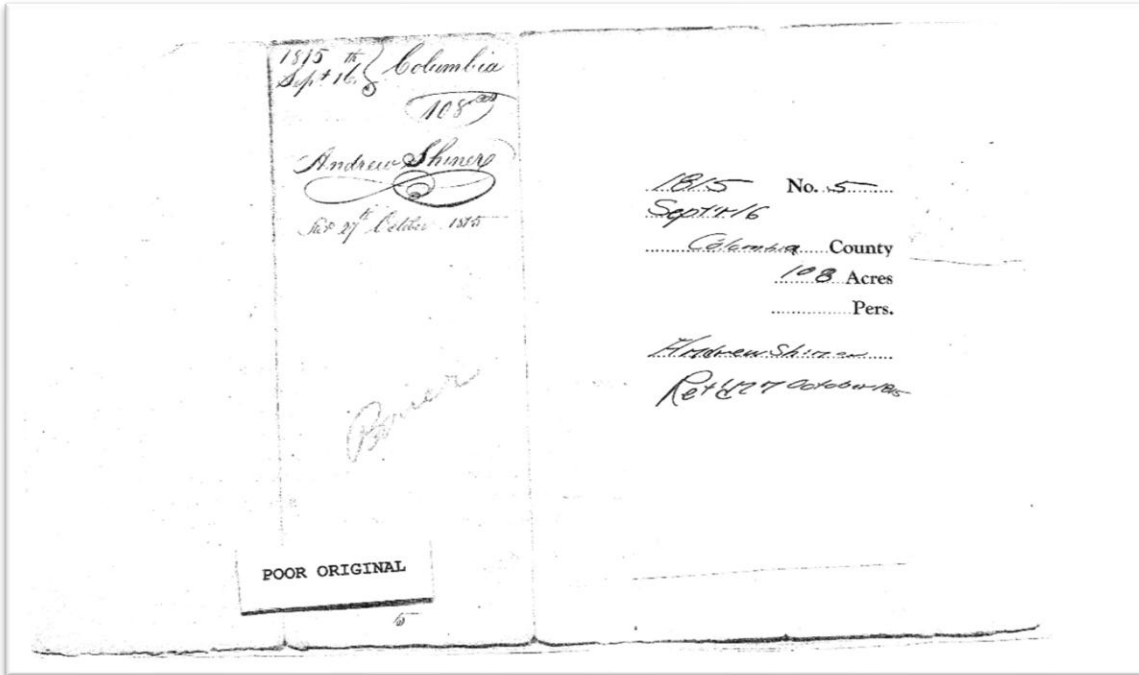 1815 th
Sept 16 } Columbia
108 as
Andrew Shiner
27th October 1815
POOR ORIGINAL
5
1815 No. 5
Sept 16
Columbia County
108 Acres
Pers.
Andrew Shiner
Ret'd 27 October 1815